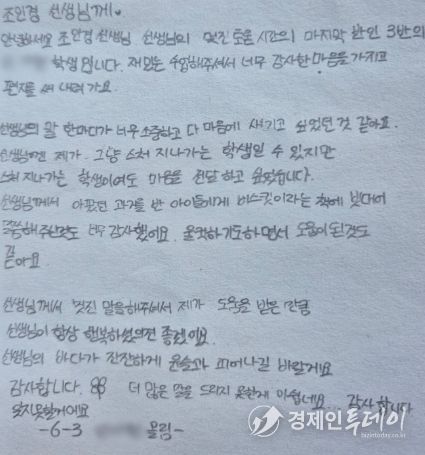 조인경 선생님께♥
안녕하세요 조인경 선생님 선생님의 멋진 도움 시간의 마지막 반인 3반의
학생입니다. 재밌는 수업해주셔서 너무 감사한 마음을 가지고
편지를 써 내려가요.
선생님의 말 한마디가 너무 소중하고 다 마음에 새기고 싶었던 것 같아요.
선생님껜 제가 그냥 스쳐 지나가는 학생일 수 있지만
스쳐 지나가는 학생이여도 마음을 전달하고 싶었습니다.
선생님께서 아팠던 과거를 반 아이들에게 비스킷이라는 책에 빗대어
말씀해주신것도 너무 감사했어요. 울컥하기도하면서 도움이 된것도
같아요
선생님께서 멋진 말을해주셔서 제가 도움을 받은 만큼
선생님이 항상 행복하셨으면 좋겠어요.
선생님의 바다가 잔잔하게 윤슬과 피어나길 바랄게요
감사합니다. 더 많은 말을 드리지 못한게 아쉽네요. 감사합니다
잊지못할거에요
-6-3 올림-
경제인투데이
bizintoday.co.kr